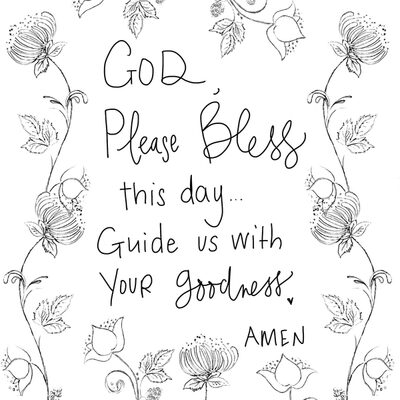 GOD,
Please Bless
this day...
Guide us with
YOUR goodness,
AMEN